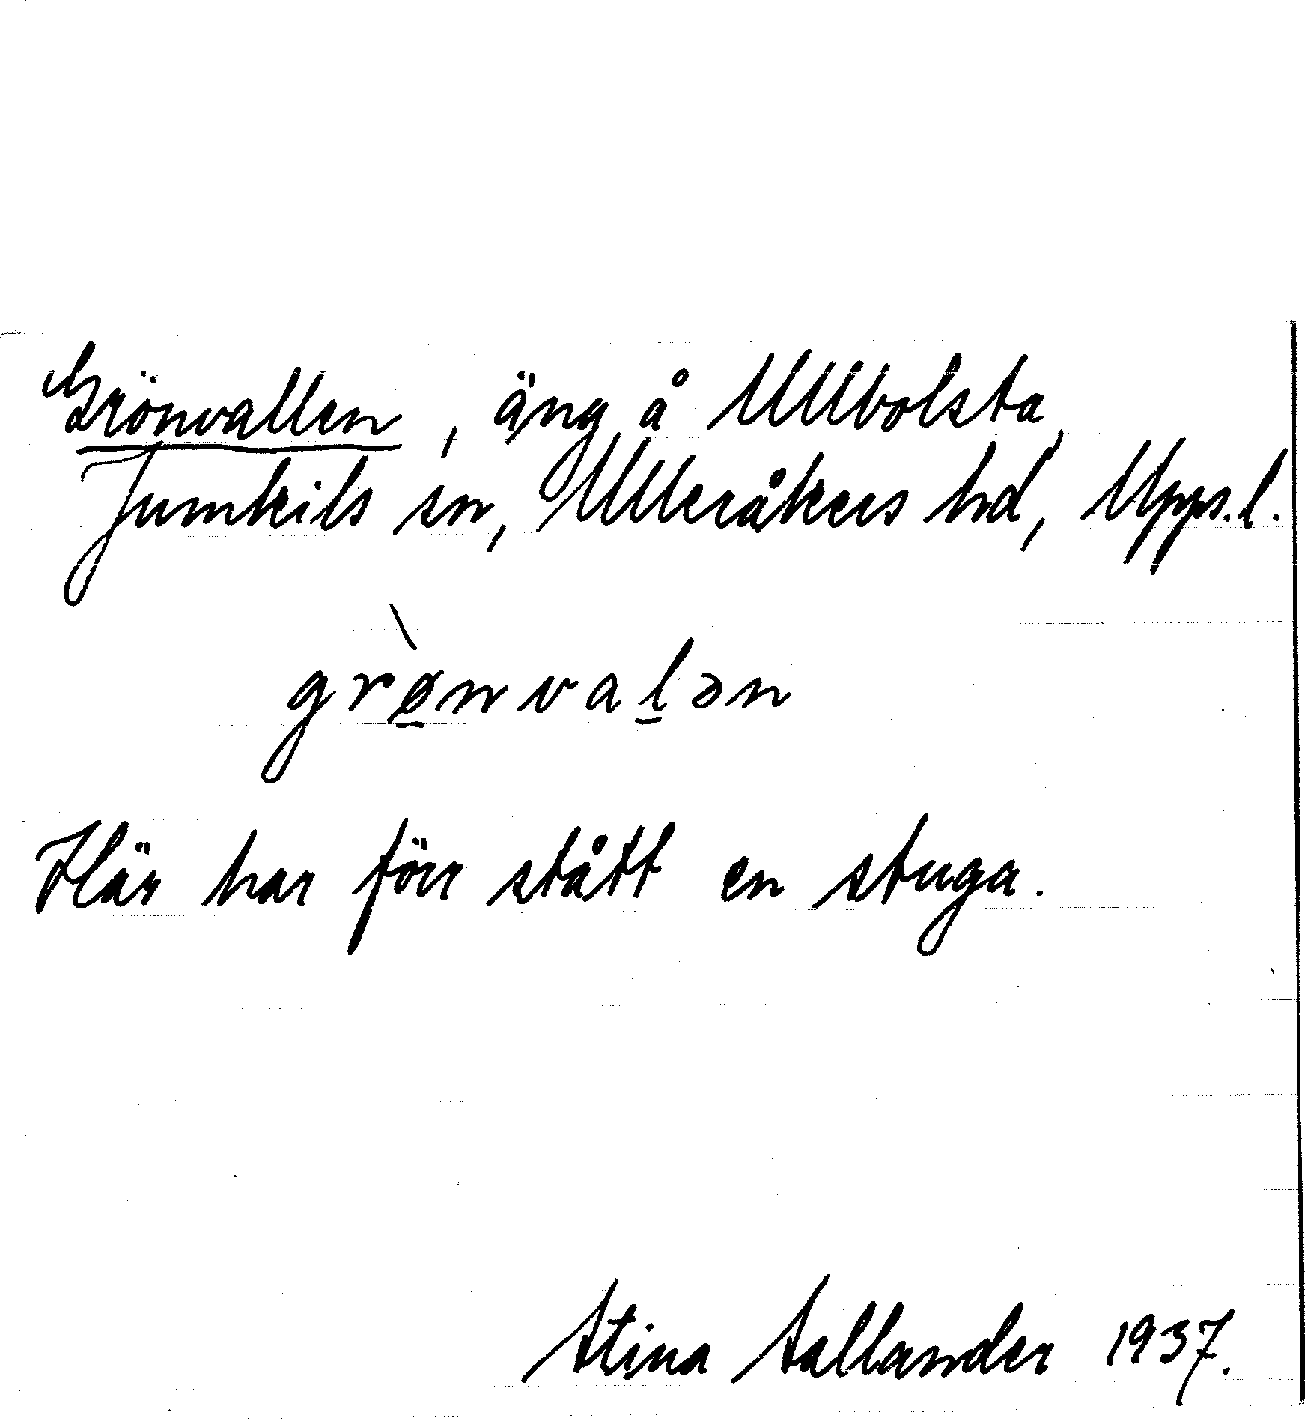 Grönvallen, äng å Ullbolsta,
Jumkils sn, Ulleråkers hd, Upps. l.
grø̱̀nvaḻən
Här har förr stått en stuga.
Stina Sallander 1937.